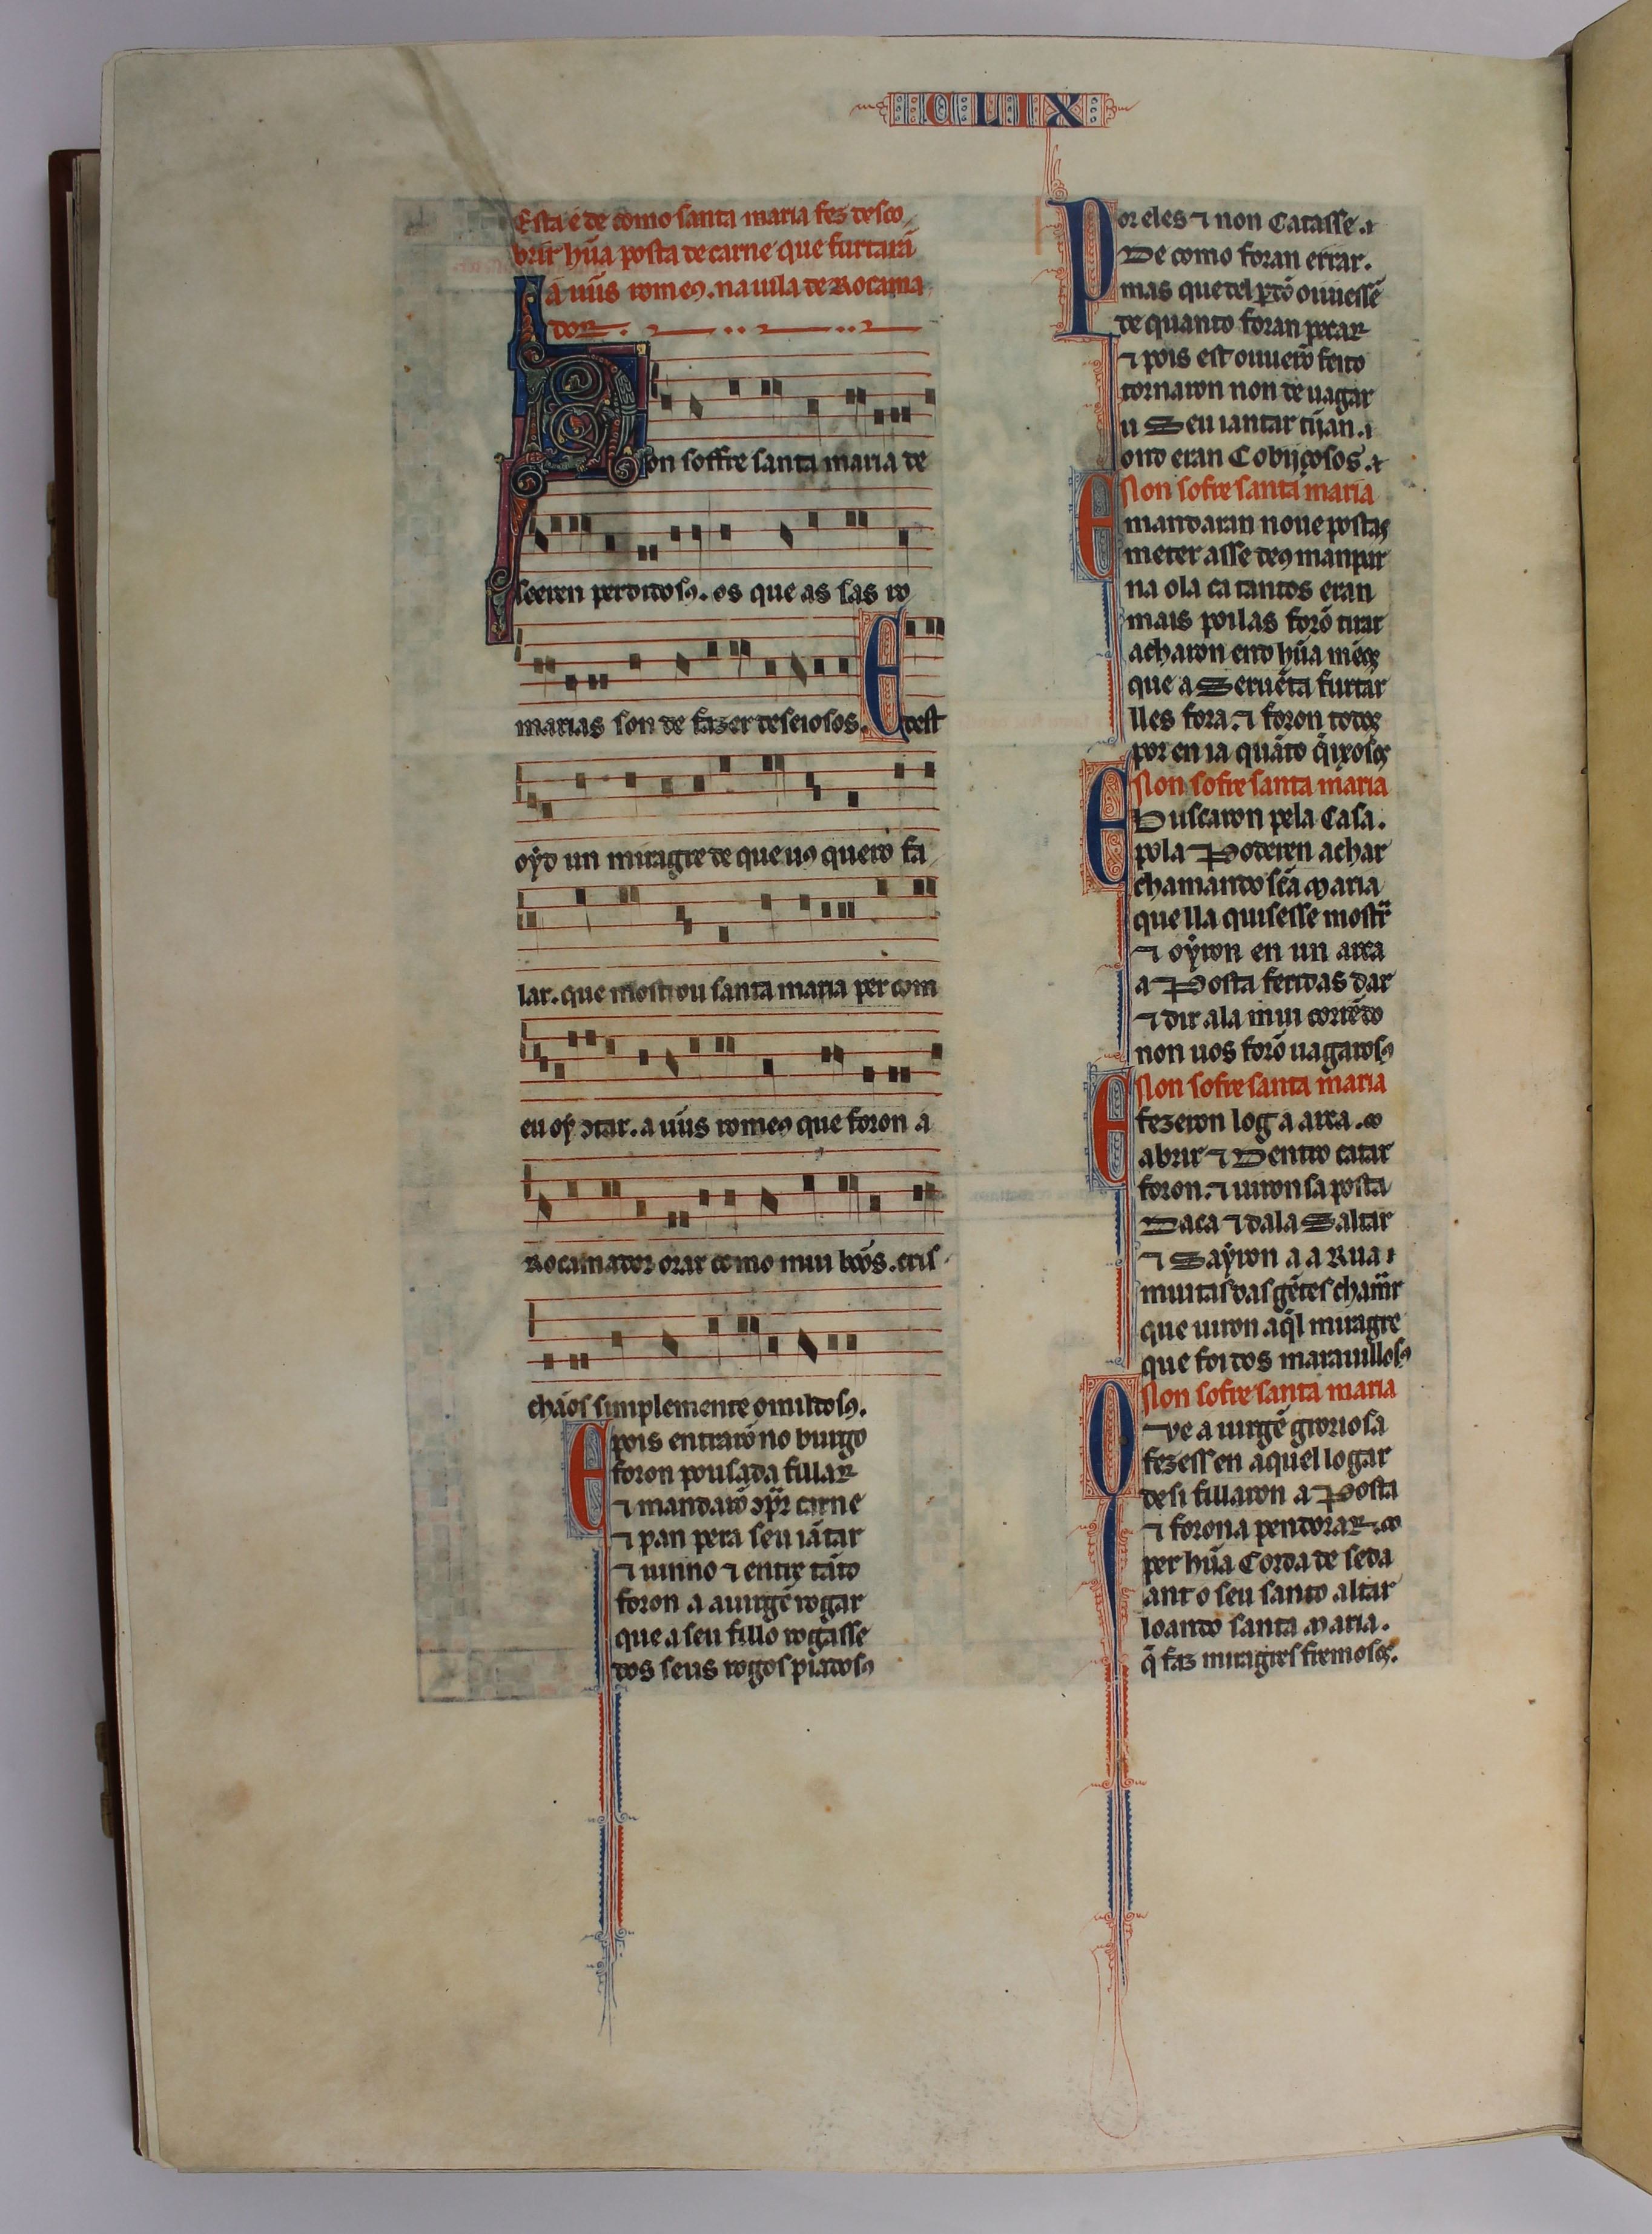 CLIX
Esta é de como santa maria fez desco
brir hũa posta de carne que furtarã
a ũus romeꝯ. na uila de Rocama
dor.
Non soffre santa maria de
seeren perdidosꝯ. os que as sas ro
marias son de fazer deseiosos. E dest
oyd un miragre de que uꝯ quero fa
lar. que mostrou santa maria per com
eu oý ↄtar. a ũus romeꝯ que foron a
Rocamador orar como mui bõos. cris
chãos simplemente omildosꝯ.
E pois entrarõ no burgo
foron pousada fillar
⁊ mandarõ ↄprar carne
⁊ pan pera seu iãtar
⁊ uinno ⁊ entre tãto
foron a a uirgẽ rogar
que a seu fillo rogasse
dos seus rogos piadosꝯ
Por eles ⁊ non Catasse.
De como foran errar.
mas que del perdõ ouuessẽ
de quanto foran pecar
⁊ pois est ouuerõ feito
tornaron non de uagar
u Seu iantar tijnan.
ond eran Cobijçosos.
Non sofre santa maria
E mandaran noue postas
meter asse deꝯ manpar
na ola ca tantos eran
mais poilas forõ tirar
acharon end hũa menos
que a Seruẽta furtar
lles fora. ⁊ foron todos
por en ia quãto q̃ixosos
Non sofre santa maria
E Buscaron pela Casa.
pola Poderen achar
chamando sc̃a Maria
que lla quisesse mostrar
⁊ oýron en un arca
a Posta feridas dar
⁊ dir ala mui corrẽdo
non uos forõ uagarosꝯ
Non sofre santa maria
E fezeron log a arca.
abrir ⁊ Dentro catar
foron. ⁊ uiron sa posta
Daca ⁊ dala Saltar
⁊ Saýron a a Rua
muitas das gẽtes chamar
que uiron aq̃l miragre
que foi dos marauillosꝯ
Non sofre santa maria
Que a uirgẽ groriosa
fezess en aquel logar
desi fillaron a Posta
⁊ forona pendorar
per hũa Corda de seda
ant o seu santo altar
loando santa Maria.
q̃ faz miragres fremosos.